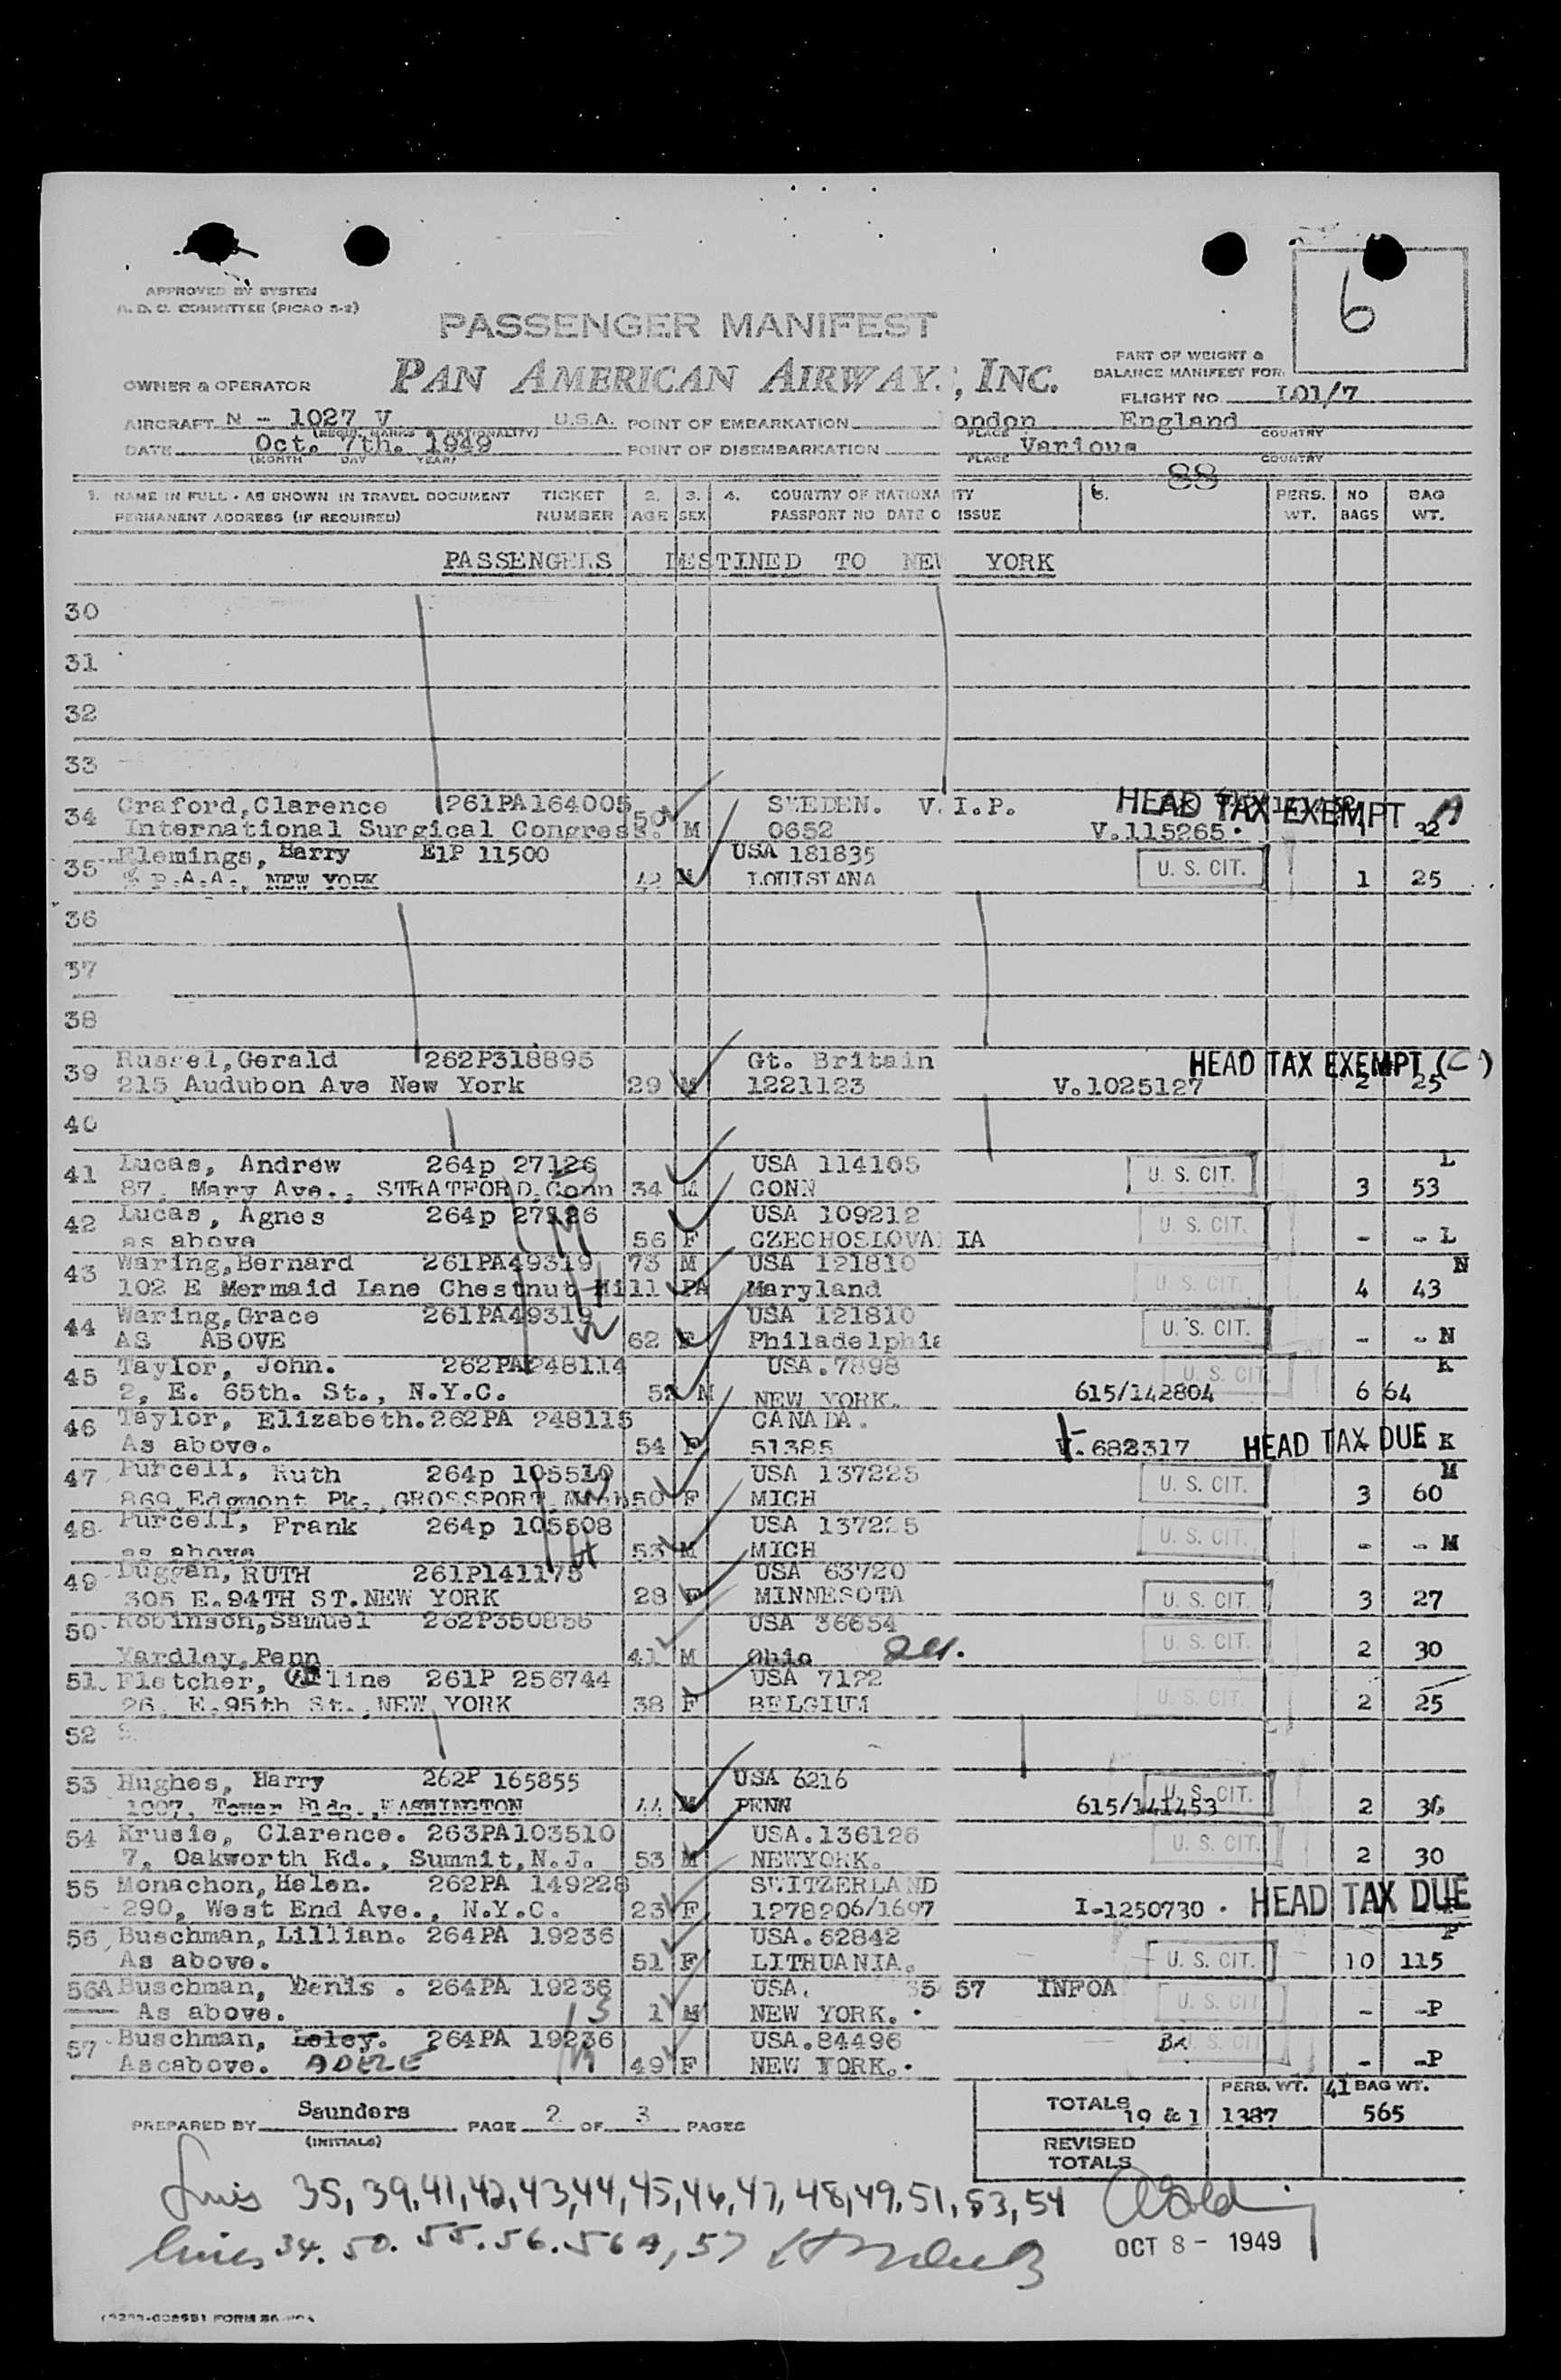 6
APPROVED BY SYSTEM
A.D.C. COMMITTEE (PICAO S-2)
PASSENGER MANIFEST
PAN AMERICAN AIRWAY , INC.
PART OF WEIGHT &
BALANCE MANIFEST FOR:
OWNER & OPERATOR
FLIGHT NO. 101/7
AIRCRAFT N - 1027 V U.S.A. POINT OF EMBARKATION ondon England
(REGIS. MARKS & NATIONALITY) PLACE COUNTRY
DATE Oct. 7th. 1949 POINT OF DISEMBARKATION Various
(MONTH DAY YEAR) PLACE COUNTRY
88
1. NAME IN FULL - AS SHOWN IN TRAVEL DOCUMENT TICKET 2. 3. 4. COUNTRY OF NATIONA ITY 5. PERS. NO BAG
PERMANENT ADDRESS (IF REQUIRED) NUMBER AGE SEX PASSPORT NO DATE O ISSUE WT. BAGS WT.
PASSENGERS DESTINED TO NEW YORK
30
31
32
33
34 Craford, Clarence 261PA164005 50 SWEDEN. V.I.P. HEAD TAX EXEMPT A
International Surgical Congress. M 0652 V.115265. 1 32
35 Flemings, Harry E1P 11500 USA 181835 U. S. CIT.
% P.A.A., NEW YORK 42 M LOUISIANA 1 25
36
37
38
39 Russel, Gerald 262P318895 Gt. Britain HEAD TAX EXEMPT (C)
215 Audubon Ave New York 29 M 1221123 V.1025127 2 25
40
41 Lucas, Andrew 264p 27126 USA 114105 U. S. CIT. L
87, Mary Ave., STRATFORD, Conn 34 M CONN 3 53
42 Lucas, Agnes 264p 27126 USA 109212 U. S. CIT.
as above 56 F CZECHOSLOVA IA - - L
43 Waring, Bernard 261PA49319 73 M USA 121810 U. S. CIT. N
102 E Mermaid Lane Chestnut Hill PA Maryland 4 43
44 Waring, Grace 261PA49319 USA 121810 U. S. CIT.
AS ABOVE 62 F Philadelphia - - N
45 Taylor, John. 262PA248114 USA.7898 U. S. CIT. K
2, E. 65th. St., N.Y.C. 52 M NEW YORK. 615/142804 6 64
46 Taylor, Elizabeth. 262PA 248115 CANADA.
As above. 54 F 51385 V.682317 HEAD TAX DUE K
47 Purcell, Ruth 264p 105510 USA 137225 U. S. CIT. M
869 Edgmont Pk., GROSSPORT Mich 50 F MICH 3 60
48 Purcell, Frank 264p 105508 USA 137225 U. S. CIT.
as above 53 M MICH - - M
49 Duggan, RUTH 261P141175 USA 63720
305 E.94TH ST.NEW YORK 28 F MINNESOTA U. S. CIT. 3 27
50 Robinson, Samuel 262P350855 USA 36654 U. S. CIT.
Yardley, Penn 41 M Ohio 2 30
51. Fletcher, line 261P 256744 USA 7122
26, E.95th St., NEW YORK 38 F BELGIUM U. S. CIT. 2 25
52
53 Hughes, Harry 262P 165855 USA 6216 U. S. CIT.
1007, Tower Bldg., WASHINGTON 44 M PENN 615/141453 2 36
54 Krusie, Clarence. 263PA103510 USA.136126 U. S. CIT.
7, Oakworth Rd., Summit, N.J. 53 M NEWYORK. 2 30
55 Monachon, Helen. 262PA 149228 SWITZERLAND
290, West End Ave., N.Y.C. 23 F 1278206/1697 I-1250730 . HEAD TAX DUE
56 Buschman, Lillian. 264PA 19236 USA.62842 P
As above. 51 F LITHUANIA. U. S. CIT. 10 115
56A Buschman, Denis . 264PA 19236 USA. 35 57 INFOA
As above. 1 M NEW YORK. U. S. CIT - -P
57 Buschman, Leley. 264PA 19236 USA.84496 U. S. CIT
Ascabove. ADELE 49 F NEW YORK. - -P
PERS. WT. 41 BAG WT.
TOTALS 19 & 1 1387 565
PREPARED BY Saunders PAGE 2 OF 3 PAGES
(INITIALS)
REVISED
TOTALS
Lines 35, 39, 41, 42, 43, 44, 45, 46, 47, 48, 49, 51, 53, 54
Lines 34. 50. 55. 56. 56A, 57
OCT 8 - 1949